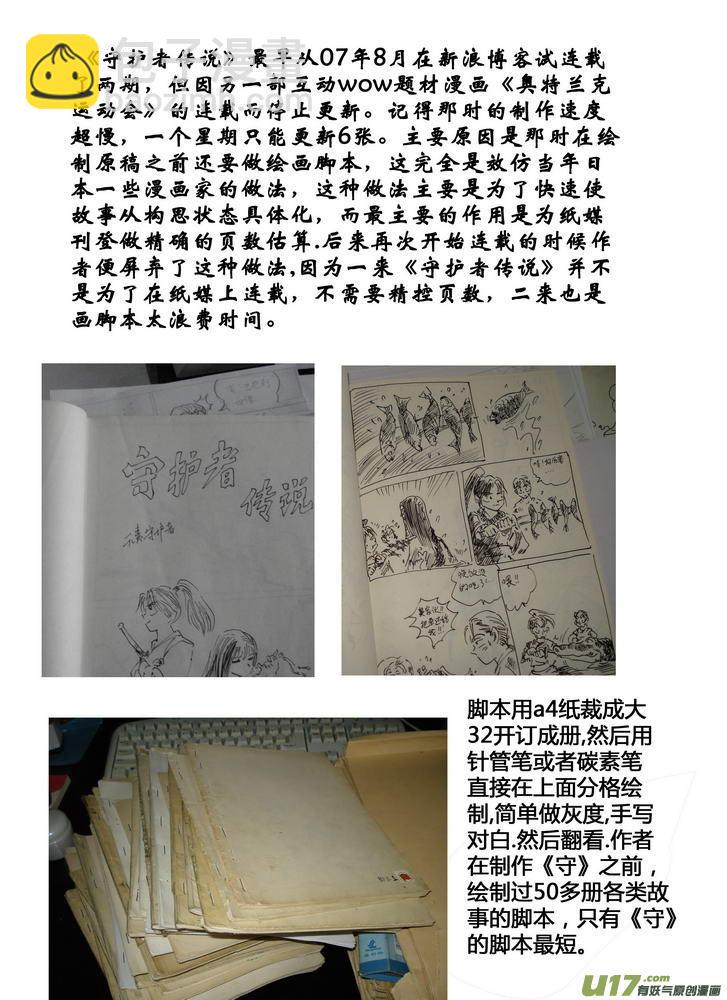 《守护者传说》最早从07年8月在新浪博客试连载
了两期，但因另一部互动wow题材漫画《奥特兰克
运动会》的连载而停止更新。记得那时的制作速度
超慢，一个星期只能更新6张。主要原因是那时在绘
制原稿之前还要做绘画脚本，这完全是效仿当年日
本一些漫画家的做法，这种做法主要是为了快速使
故事从构思状态具体化，而最主要的作用是为纸媒
刊登做精确的页数估算.后来再次开始连载的时候作
者便屏弃了这种做法,因为一来《守护者传说》并不
是为了在纸媒上连载，不需要精控页数，二来也是
画脚本太浪费时间。
包子漫畫
baozimh.com
守护者
传说
脚本用a4纸裁成大
32开订成册,然后用
针管笔或者碳素笔
直接在上面分格绘
制,简单做灰度,手写
对白.然后翻看.作者
在制作《守》之前，
绘制过50多册各类故
事的脚本，只有《守》
的脚本最短。
U17.com
有妖气原创漫画